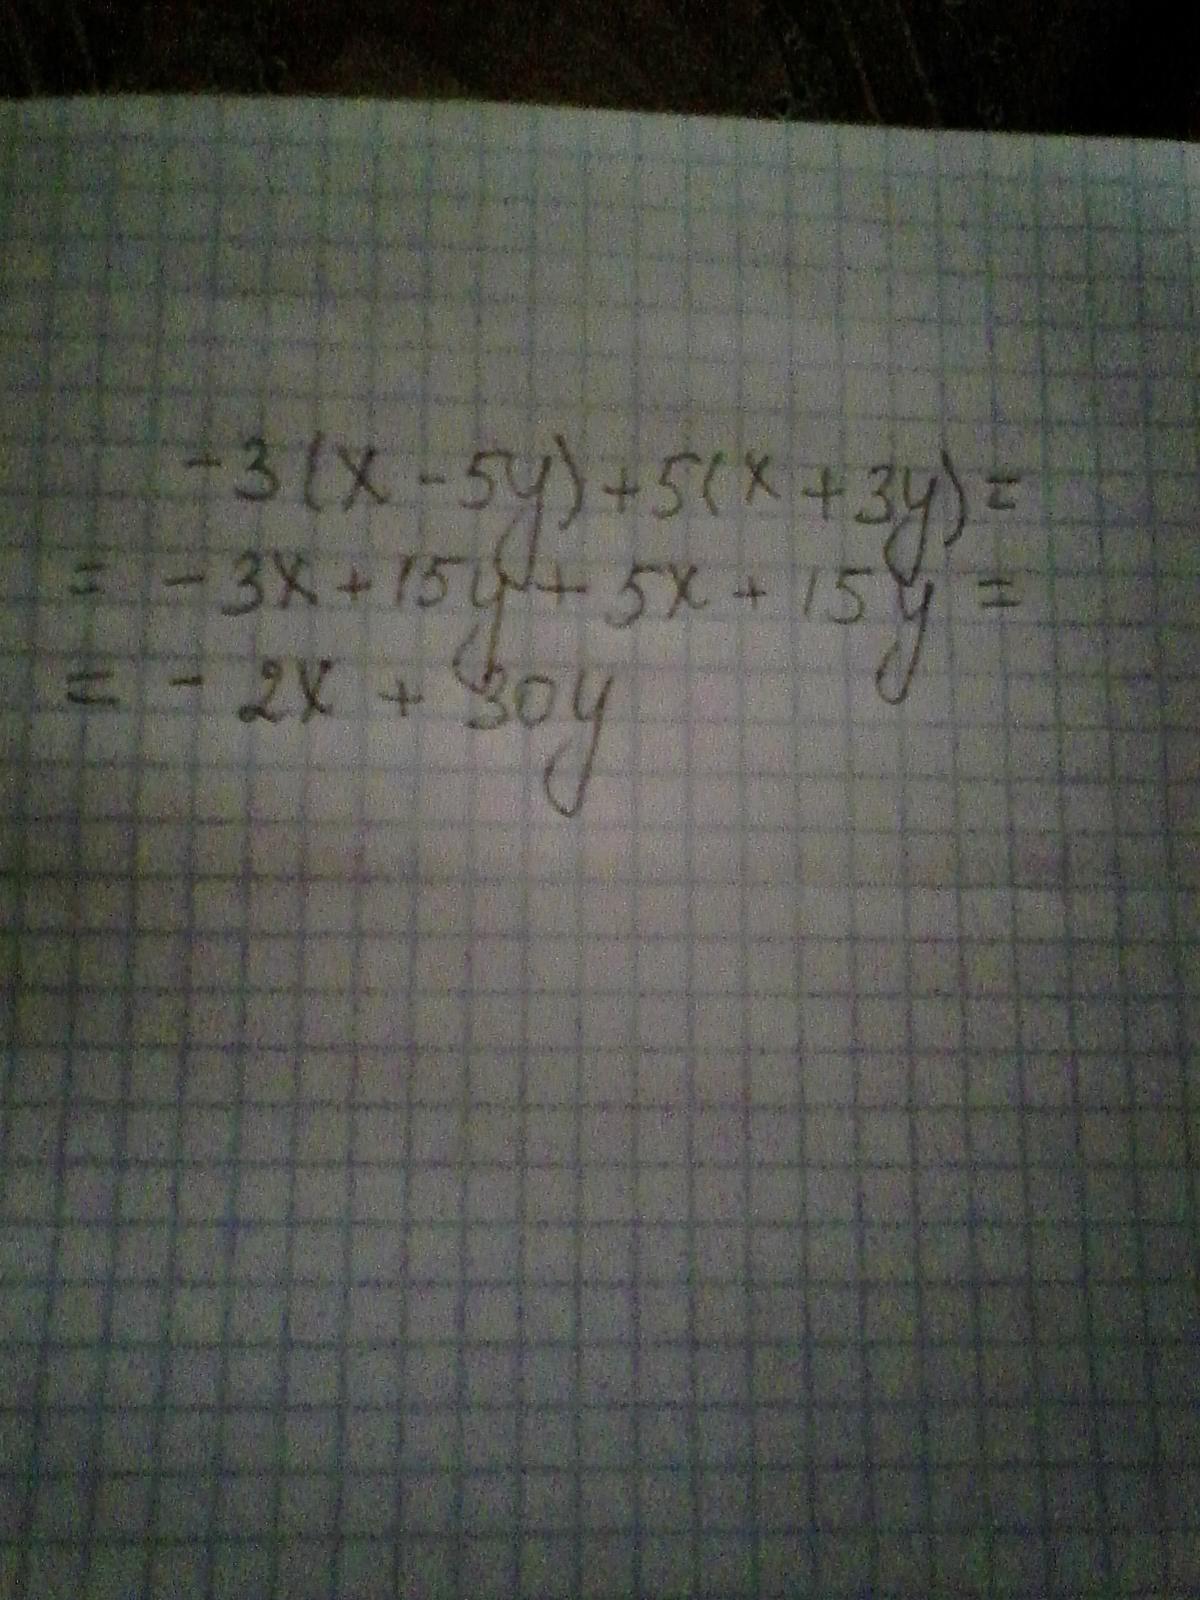 -3(x-5y)+5(x+3y)=
= -3x+15y+5x+15y=
= - 2x + 30y